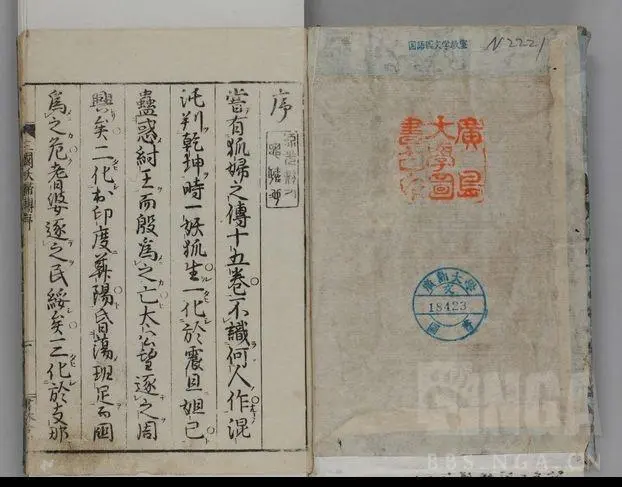 国語国文学教室
N2221
廣島
大學圖
書之印
廣島大學
18423
圖書
序
嘗有狐婦之傳十五卷不識何人作混
沌判乾坤時一妖狐生一化於震旦妲己
蠱惑紂王而殷為之亡太公望逐之周
興矣二化於印度華陽昏蕩班足而國
為之危耆婆逐之民綏矣三化於支那
NGA
BBS.NGA.CN